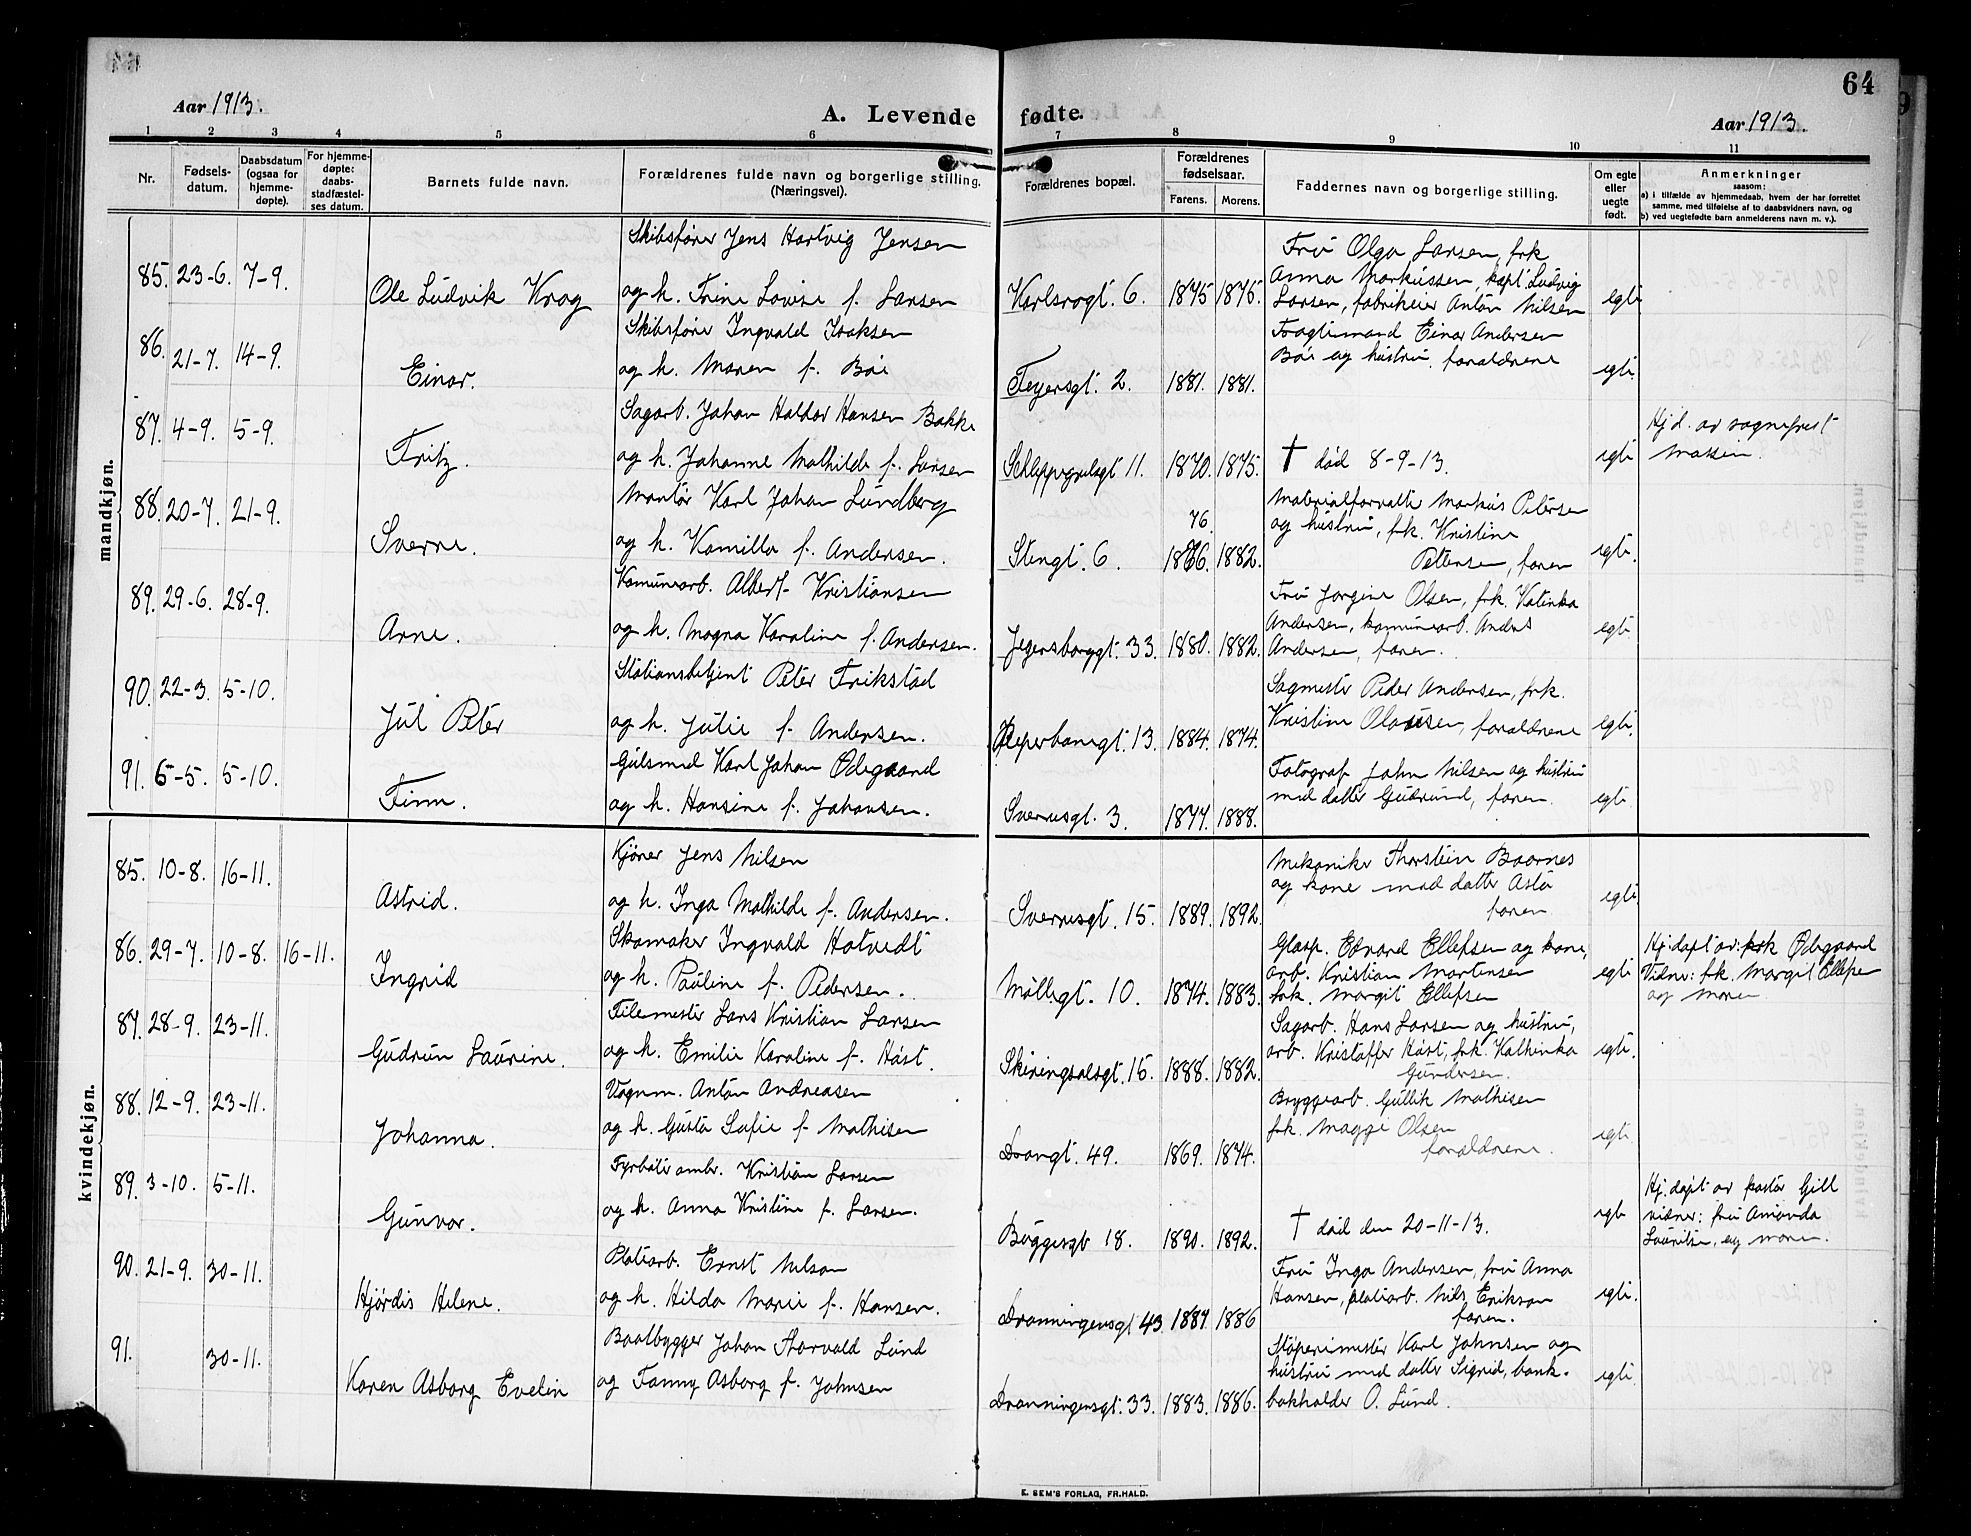 64
Aar 1913.
A. Levende fødte.
Aar 1913.
1 2 3 4 5 6 7 8 9 10 11
Nr.
Fødsels-
datum.
Daabsdatum
(ogsaa for
hjemme-
døpte).
For hjemme-
døpte:
daabs-
stadfæstel-
ses datum.
Barnets fulde navn.
Forældrenes fulde navn og borgerlige stilling.
(Næringsvei).
Forældrenes bopæl.
Forældrenes
fødselsaar.
Farens. Morens.
Faddernes navn og borgerlige stilling.
Om egte
eller
uegte
født.
Anmerkninger
saasom:
a) i tilfælde av hjemmedaab, hvem der har forrettet
samme, med tilføielse af to daabsvidners navn, og
b) ved uegtefødte barn anmelderens navn m. v.).
mandkjøn.
85. 23-6. 7-9.
Ole Ludvik Krog
Skibsfører Jens Hartvig Jensen
og h. Trine Lovise f. Larsen
Karlsrogt. 6. 1875 1875.
Fru Olga Larsen, frk
Anna Markussen, kapt. Ludvig
Larsen, fabrikeier Anton Nilsen
egte
86. 21-7. 14-9.
Einar.
Skibsfører Ingvald Isaksen
og h. Maren f. Bøe
Feyersgt. 2. 1881. 1881.
Fragtemand Einar Andersen
Bøe og hustru, forældrene
egte.
87. 4-9. 5-9.
Fritz.
Sagarb. Johan Haldor Hansen Bakke
og h. Johanne Mathilde f. Larsen
Schleppegrelsgt 11. 1870. 1875.
† død 8-9-13.
egte
Hj. d. av sogneprest
88. 20-7. 21-9.
Sverre.
Montør Karl Johan Lundberg
og h. Kamilla f. Andersen.
Stengt. 6. 76 1886. 1882.
Materialforvalter Markus Petersen
og hustru, frk. Kristine
Pettersen, faren
egte.
89. 29-6. 28-9.
Arne.
Komunearb. Albert Kristiansen
og h. Magna Karoline f. Andersen.
Jegersborggt. 33. 1880. 1882.
Fru Jørgine Olsen, frk. Katinka
Andersen, komunearb. Anders
Andersen, faren.
egte
90. 22-3. 5-10.
Jul Peter
Stationsbetjent Peter Frikstad
og h. Julie f. Andersen.
Reperbanegt. 13. 1884. 1874.
Sagmester Peder Andersen, frk.
Kristine Olausen, forældrene
egte.
91. 5-5. 5-10.
Finn.
Gulsmed Karl Johan Ødegaard
og h. Hansine f. Johansen.
Sverresgt. 3. 1877. 1888.
Fotograf John Nilsen og hustru
med datter Gudrund, faren.
egte.
kvindekjøn.
85. 10-8. 16-11.
Astrid.
Kjører Jens Nilsen
og h. Inga Mathilde f. Andersen.
Sverresgt. 15. 1889. 1892.
Mekaniker Thorstein Baarnes
og kone med datter Asta
faren
egte
86. 29-7. 10-8. 16-11.
Ingrid
Skomaker Ingvald Hotvedt
og h. Pauline f. Pedersen.
Møllegt. 10. 1874. 1883.
Glasp. Edvard Ellefsen og kone,
arb. Kristian Martensen
frk. Margit Ellefsen
egte
Hj. døpt av: frk Ødegaard
Vidner: frk. Margit Ellefsen
og moren
87. 28-9. 23-11.
Gudrun Laurine.
Filemester Lars Kristian Larsen
og h. Emilie Karoline f. Høst.
Skiringsalsgt. 15. 1888. 1882.
Sagarb. Hans Larsen og hustru,
arb. Kristoffer Høst, frk. Kathinka
Gundersen.
egte.
88. 12-9. 23-11.
Johanna.
Vognm. Anton Andreasen
og h. Gusta Sofie f. Mathisen
Drangt. 49. 1869. 1874.
Bryggearb. Gullik Mathisen
frk. Maggi Olsen
forældrene.
egte
89. 3-10. 5-11.
Gunvor.
Fyrbøter ombr. Kristian Larsen
og h. Anna Kristine f. Larsen.
Buggesgt 18. 1890. 1892.
† død den 20-11-13.
egte
Hj. døpt av pastor Gill
vidner: fru Amanda
Lauritsen, og moren.
90. 21-9. 30-11.
Hjørdis Helene.
Platearb. Ernst Nilsen
og h. Hilda Marie f. Hansen.
Dronningensgt 43. 1887. 1886
Fru Inga Andersen, fru Anna
Hansen, platearb. Nils Erikson
faren.
egte.
91. 30-11.
Karen Asborg Evelin
Baatbygger Johan Thorvald Lund
og Fanny Asborg f. Johnsen
Dronningensgt. 33. 1883. 1886.
Støperimester Karl Johnsen og
hustru med datter Sigrid, bank-
bokholder O. Lund.
egte.
E. SEM'S FORLAG, FR.HALD.